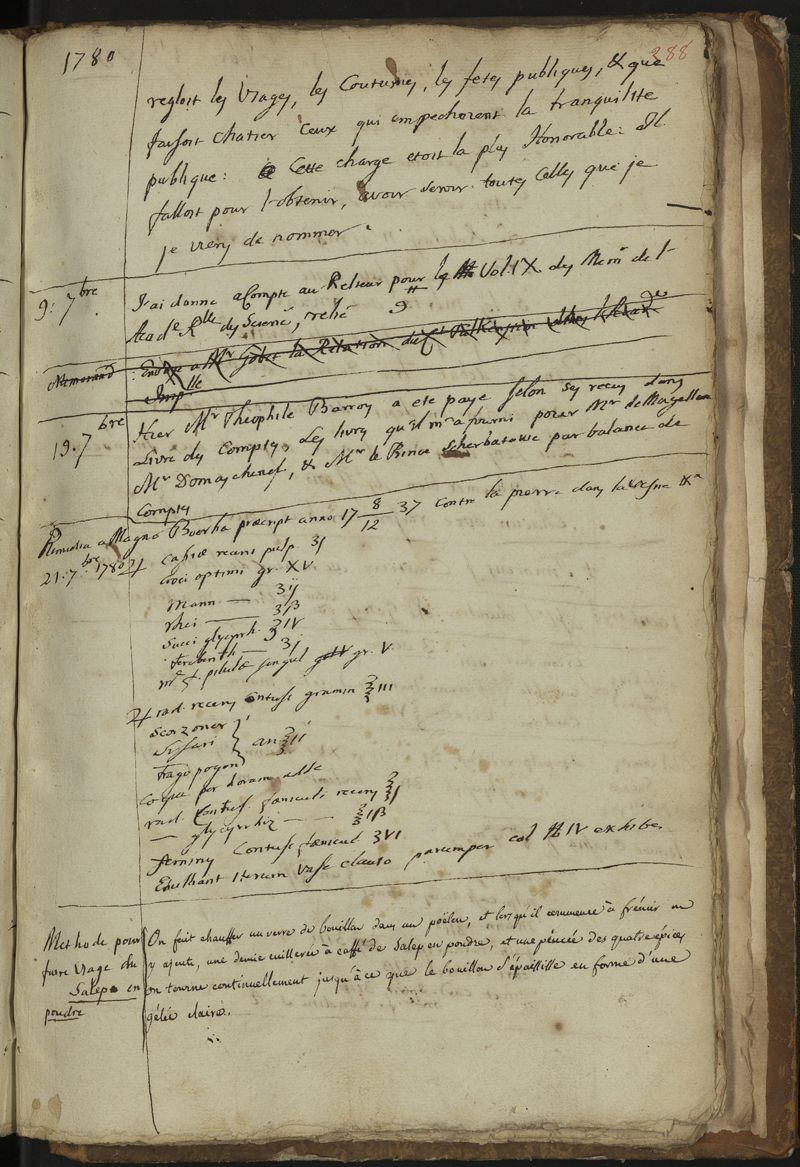 1780
388
regloit les Usages, les Coutumes, les fetes publiques, & que
faisoit chatier ceux qui empechoient la tranquilité
publique: Cette charge etoit la plus Honorable: Il
falloit pour l'obtenir, avoir servir toutes celles que je
je viens de nommer.
9: 7bre J'ai donne a Compte au Relieur pour le Vol. IX. des Mem. de l'
Acad.e R.lle des Scienc, relié 9
Memorand Envoye a Mr Gobet la Relation du
Imp.lle
19. 7bre Hier Mr Theophile Barroy a ete paye selon ses recus dans
Livre des Comptes, des livres qu'il m'a fourni pour Mr de Magellan
Mr Domaschenef, & Mr le Prince Scherbatowe par balance de
Compte
Remedia a Magno Boerha præcript anno 17 8/12 37 contre la pierre dans la
21. 7bre 1780 ♃ Cassiæ recens pulp. ʒj
Croci optimi gr. XV
Mann — ʒij
Rhei — ʒβ
Succi glycyrrh. ʒIV
Terebinth — ʒj
pilulæ singul gr. V.
♃ rad. recens contuse gramin ℥III
Scorzoner
Sisari } an ℥II
Tragopogon
Coque per horam adde
rad. Contus. fœniculi recens ℥j
— glycyrrhiz — ℥iβ
semins Contuse fœnicul ʒVI
Ebulliant iterum vase clauso parumper col ℔IV exhibe.
Methode pour On fait chauffer un verre de bouillon dans un poëlon, et lorsqu'il commence à frémir on
faire Usage du y ajoute, une demie cuillerée à caffé de Salep en poudre, et une pincée des quatre épices
Salep en on tourne continuellement jusqu'à ce que le bouillon s'épaississe en forme d'une
poudre gélée claire.